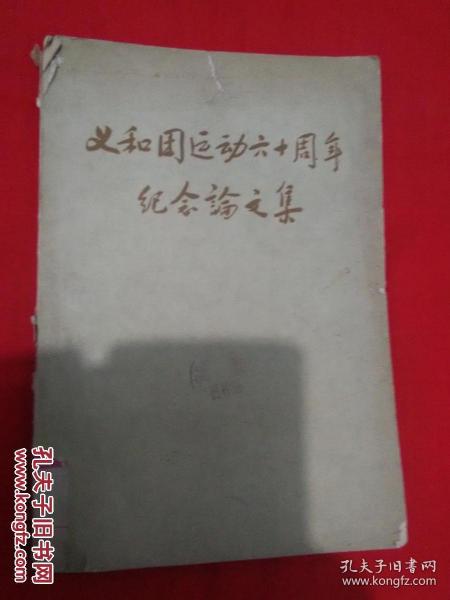 义和团运动六十周年
纪念論文集
孔夫子旧书网
www.kongfz.com
孔夫子旧书网
www.kongfz.com